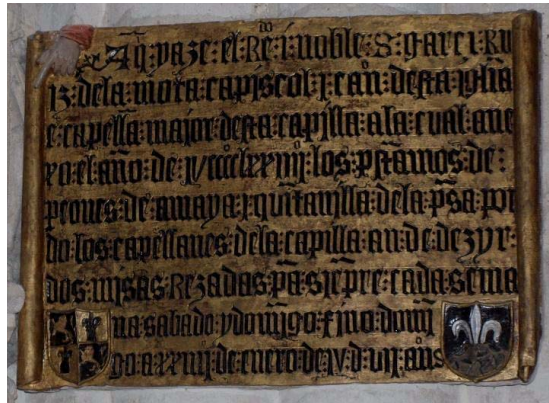 Aq̃: yaze: el: Re: i: noble: S: garci: Ru
iz: dela: mota: capiscol: i: can: desta iglia
e: capellã maior: desta capilla: ala cual: ane
xo el: año: de: IVccccLxxiiii: los: p̃stamos: de:
peones: de: amaya: i: quitanilla: dela: p̃sa: por
do: los: capellanes: dela: capilla: an: de: dezyr:
dos: misas: Rezadas: p̃a: siẽpre: cada: sema
na: sabado: y domĩgo: fino: domĩ
go: a xxiiii: de: enero: de IV: d: vii: años